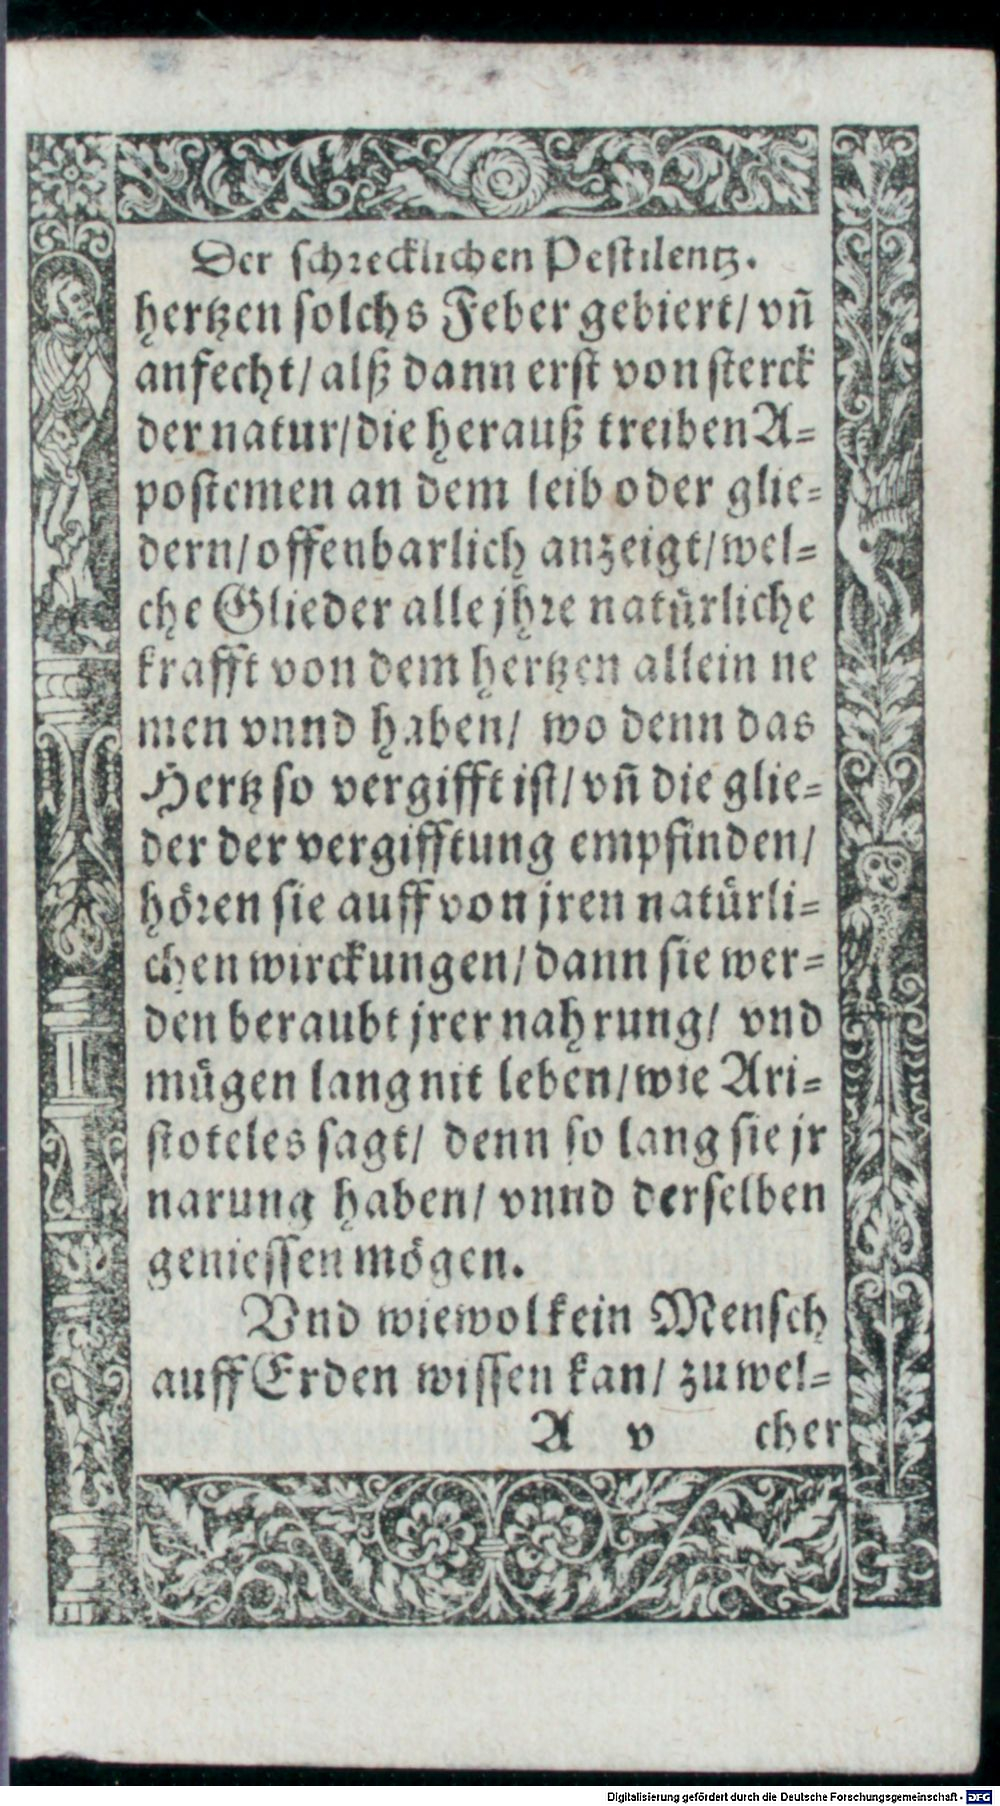 Der schrecklichen Pestilentz.
hertzen solchs Feber gebiert/ vñ
anfecht/ alß dann erst von sterck
der natur/ die herauß treiben A=
postemen an dem leib oder glie=
dern/ offenbarlich anzeigt/ wel=
che Glieder alle jhre natürliche
krafft von dem hertzen allein ne
men vnnd haben/ wo denn das
Hertz so vergifft ist/ vñ die glie=
der der vergifftung empfinden/
hören sie auff von jren natürli=
chen wirckungen/ dann sie wer=
den beraubt jrer nahrung/ vnd
mügen lang nit leben/ wie Ari=
stoteles sagt/ denn so lang sie jr
narung haben/ vnnd derselben
geniessen mögen.
Vnd wiewol kein Mensch
auff Erden wissen kan/ zu wel=
A v cher
Digitalisierung gefördert durch die Deutsche Forschungsgemeinschaft - DFG